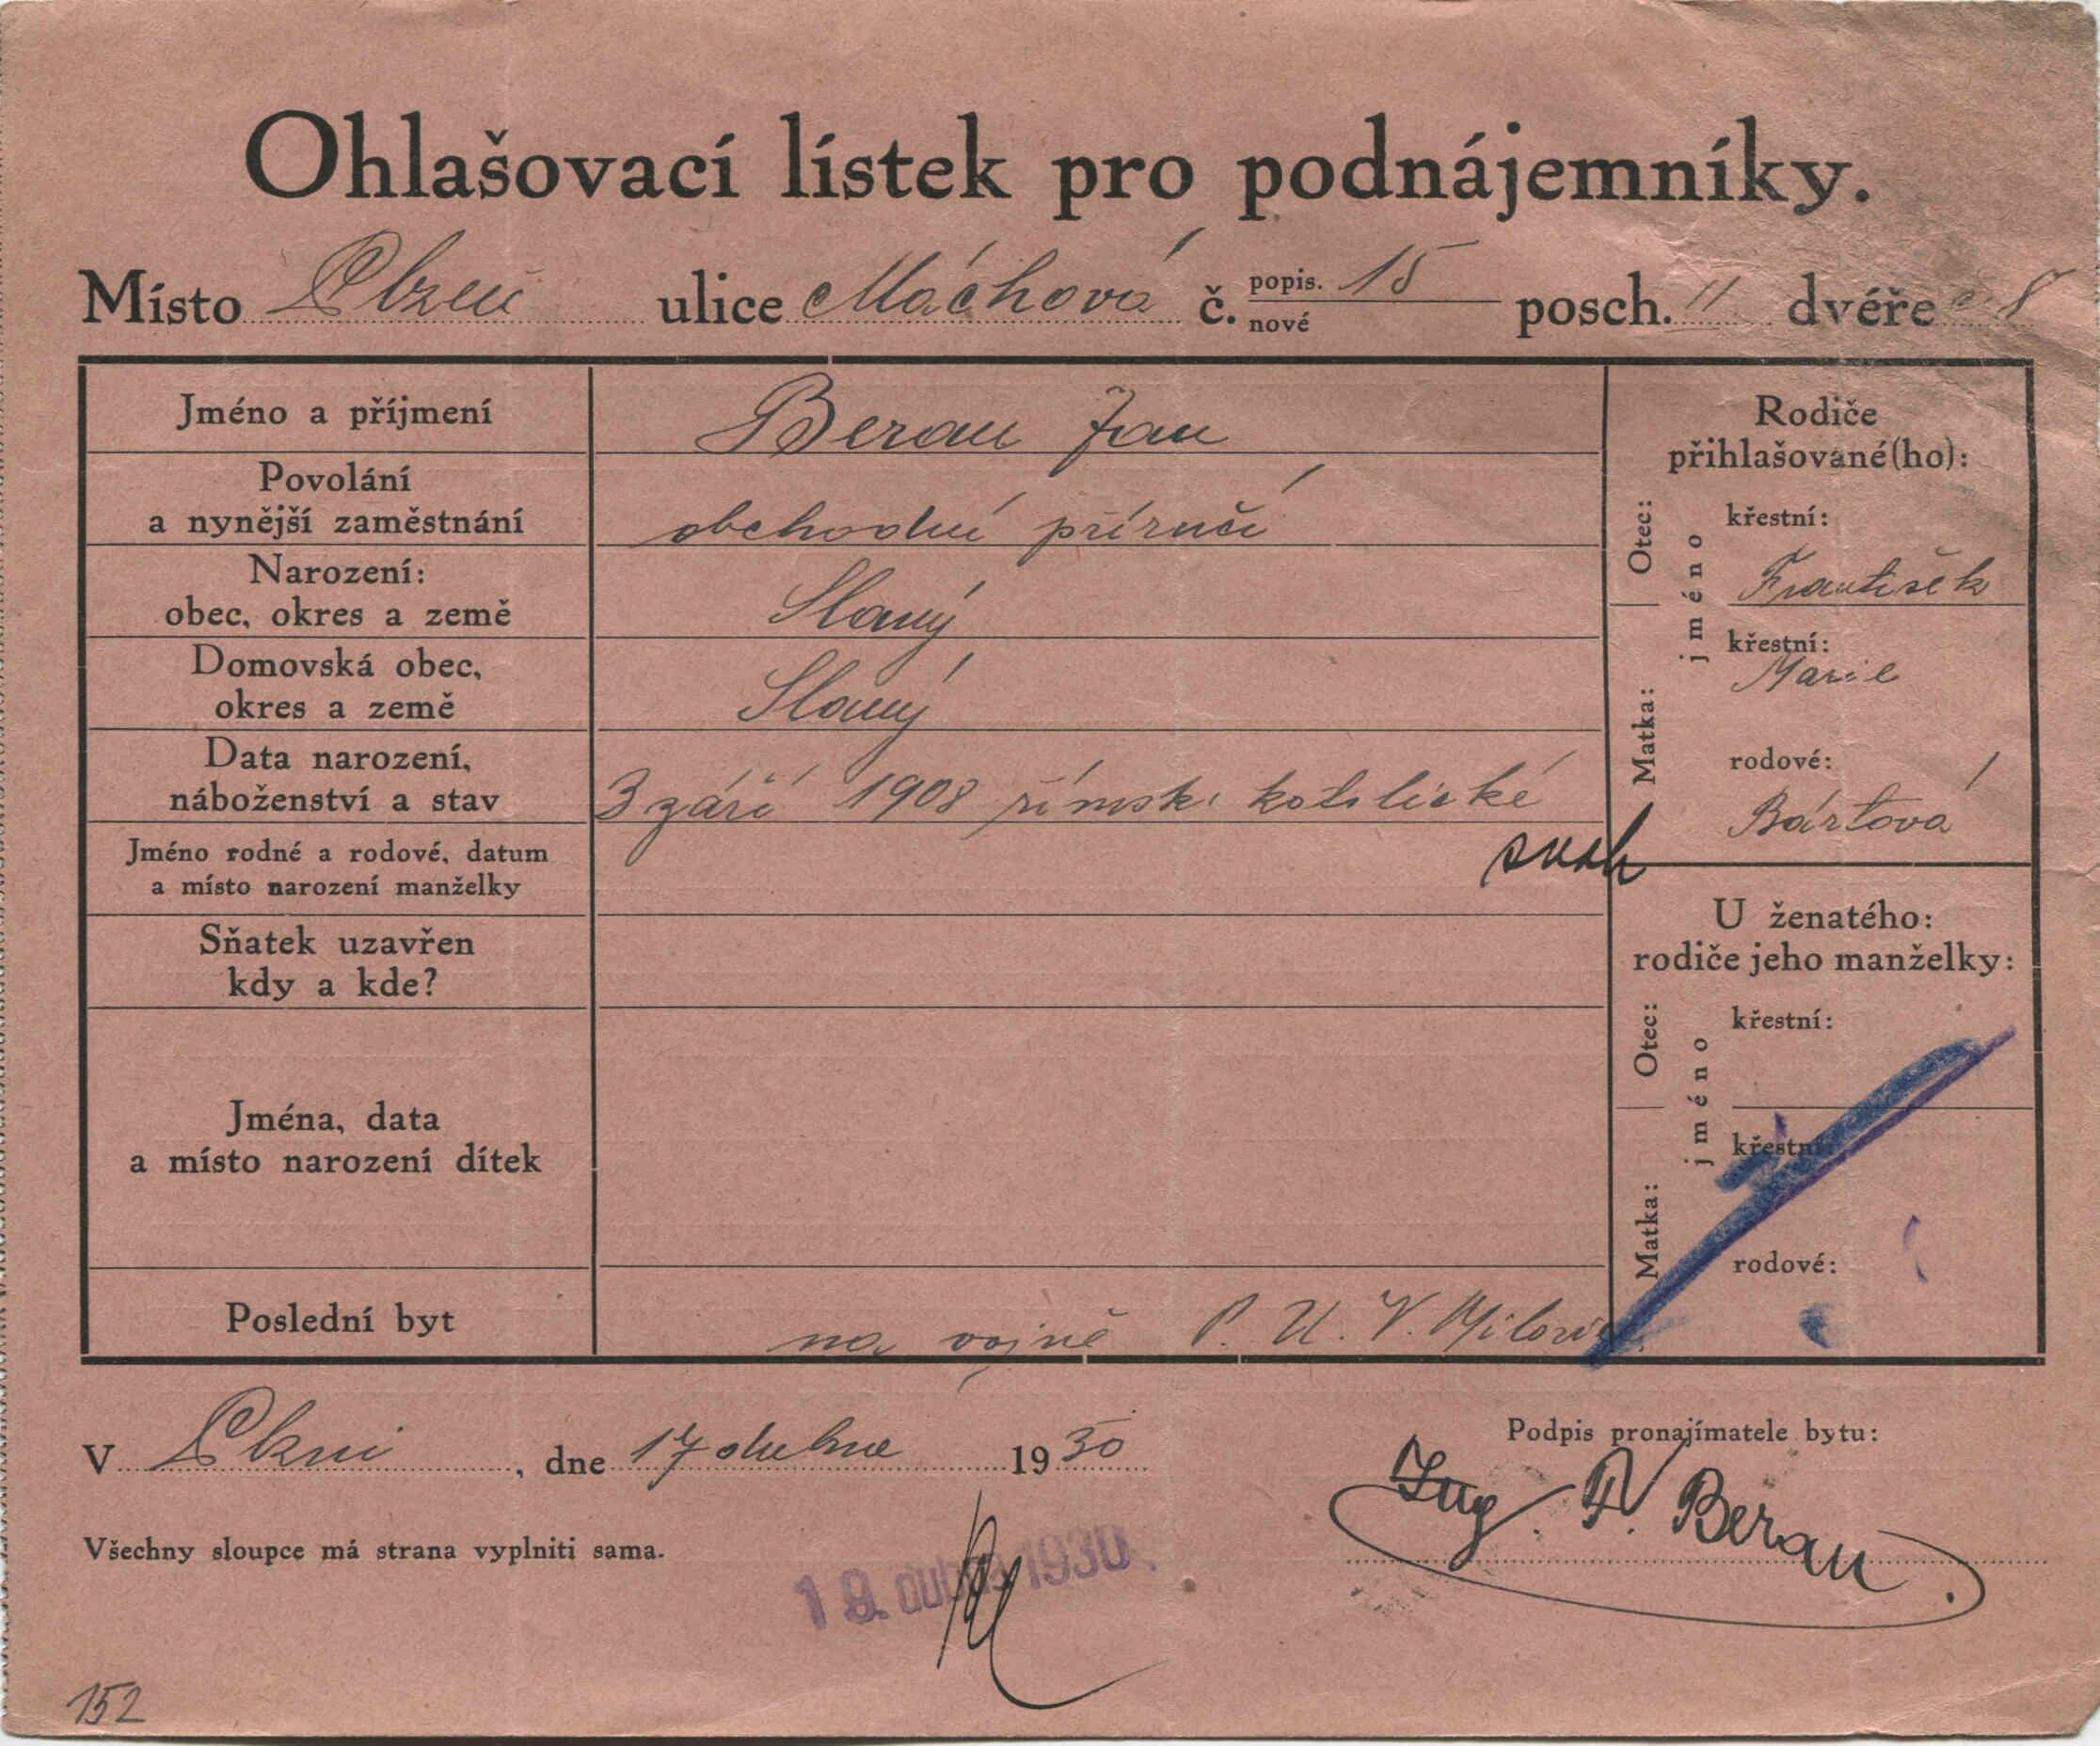 Ohlašovací lístek pro podnájemníky.
Místo Plzeň ulice Máchová č. popis. 15 nové posch. II dvéře č. 8
Jméno a příjmení Beran Jan
Povolání
a nynější zaměstnání obchodní příručí
Narození:
obec, okres a země Slaný
Domovská obec,
okres a země Slaný
Data narození,
náboženství a stav 3 září 1908 římsk. katolické
svob
Jméno rodné a rodové, datum
a místo narození manželky
Sňatek uzavřen
kdy a kde?
Jména, data
a místo narození dítek
Poslední byt na vojně P. U. V. Milovi
Rodiče
přihlašované(ho):
Otec:
jméno
křestní:
František
Matka:
křestní:
Marie
rodové:
Bártová
U ženatého:
rodiče jeho manželky:
Otec:
jméno
křestní:
Matka:
křestní:
rodové:
V Plzni, dne 17 dubna 1930
Podpis pronajímatele bytu:
Ing. F. Beran
Všechny sloupce má strana vyplniti sama.
19. dubna 1930
152